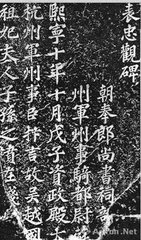 表忠觀碑
朝奉郎尚書祠部
州軍州事騎都尉
熙寧十年十月戊子資政殿
杭州軍州事臣抃言故吳越國
祖妃夫人子孫之墳在